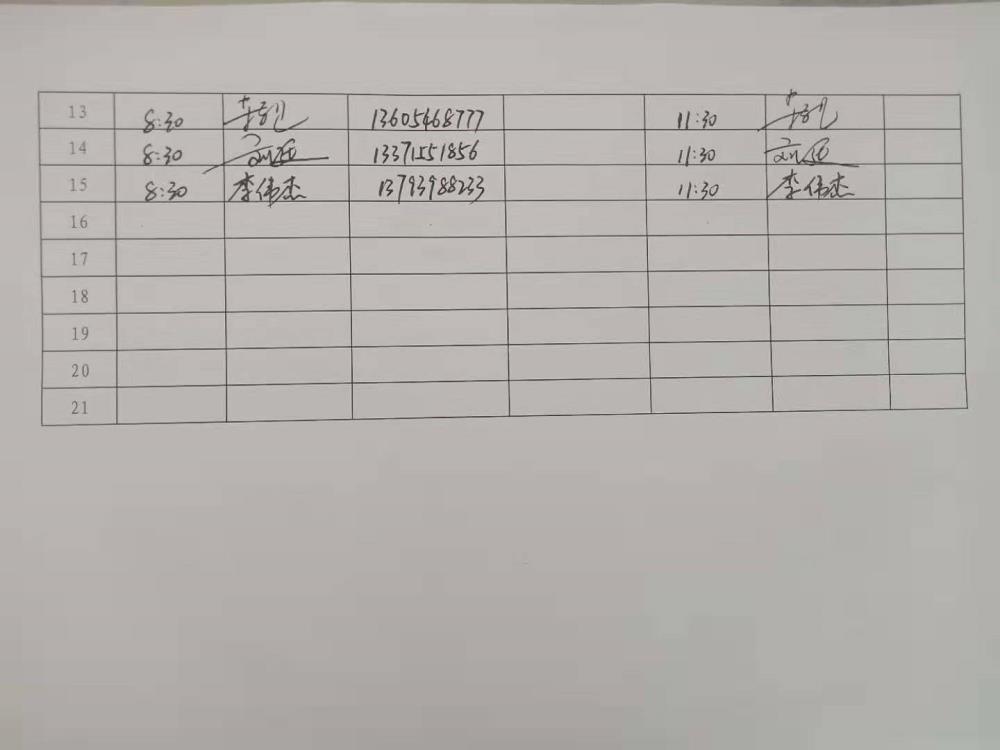 13 8:30 13605468777 11:30
14 8:30 13371551856 11:30
15 8:30 李伟杰 13793988233 11:30 李伟杰
16
17
18
19
20
21